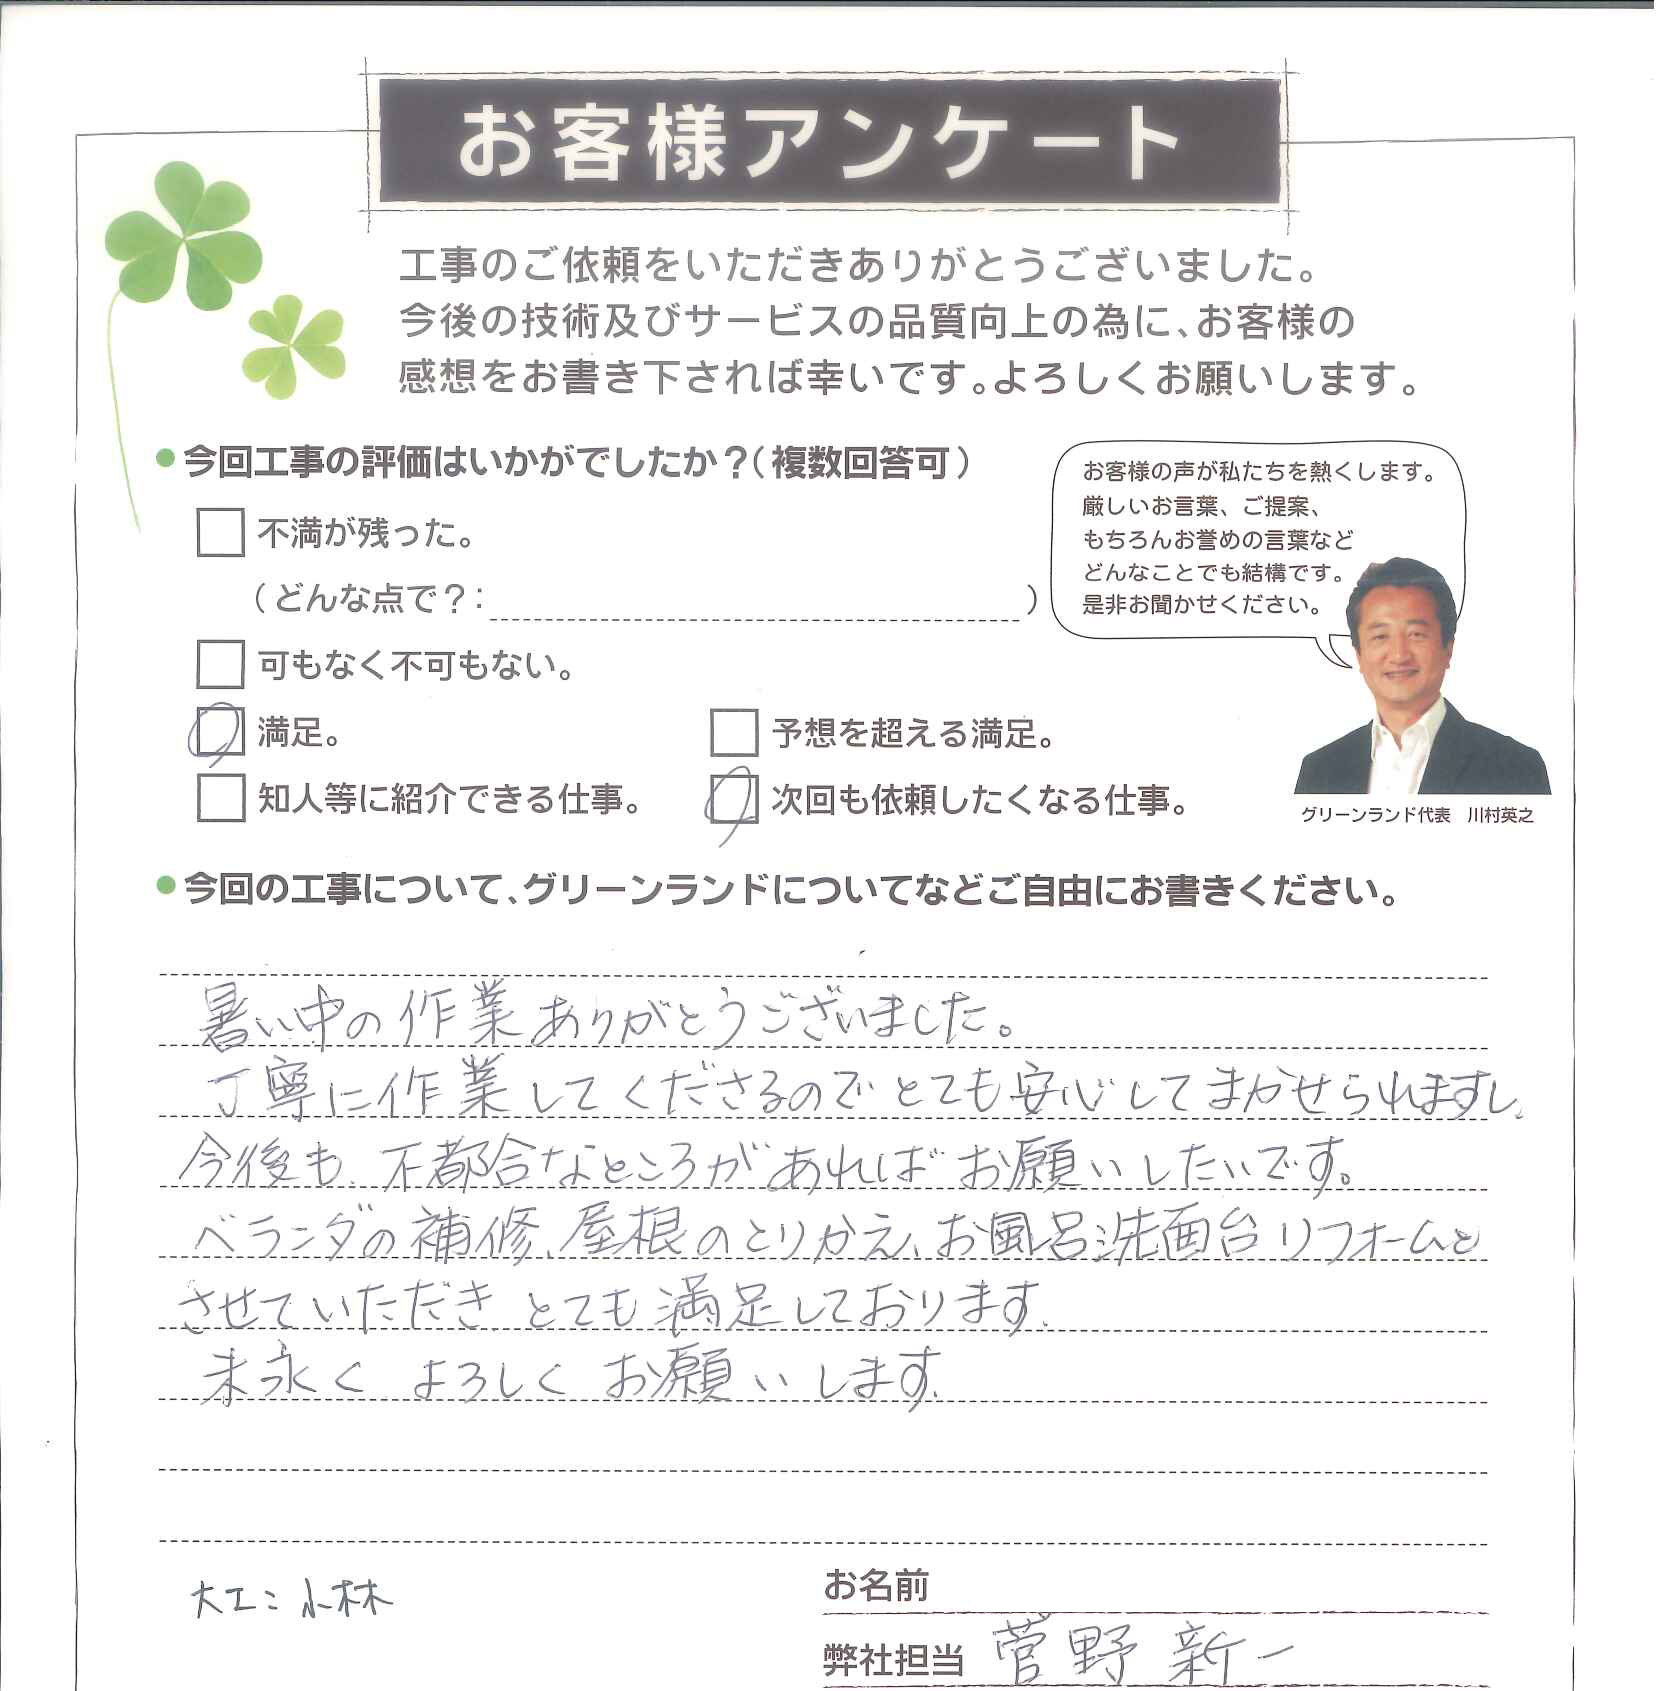 お客様アンケート
工事のご依頼をいただきありがとうございました。
今後の技術及びサービスの品質向上の為に、お客様の
感想をお書き下されば幸いです。よろしくお願いします。
今回工事の評価はいかがでしたか？（複数回答可）
不満が残った。
（どんな点で？： ）
可もなく不可もない。
満足。
予想を超える満足。
知人等に紹介できる仕事。
次回も依頼したくなる仕事。
お客様の声が私たちを熱くします。
厳しいお言葉、ご提案、
もちろんお誉めの言葉など
どんなことでも結構です。
是非お聞かせください。
グリーンランド代表　川村英之
今回の工事について、グリーンランドについてなどご自由にお書きください。
暑い中の作業ありがとうございました。
丁寧に作業してくださるのでとても安心してまかせられますし、
今後も、不都合なところがあればお願いしたいです。
ベランダの補修、屋根のとりかえ、お風呂洗面台リフォームと
させていただき、とても満足しております。
末永く よろしく お願いします。
大工：小林
お名前
弊社担当 菅野 新一